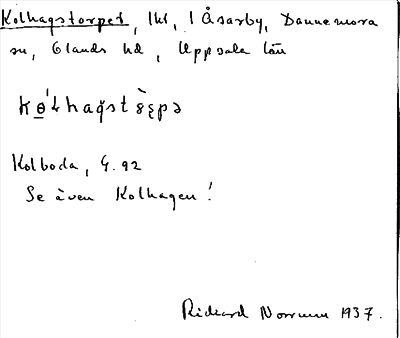 Kolhagstorpet, lht, i Åsarby, Dannemora
sn, Olands hd, Uppsala län
Kolboda, G. 92
Se även Kolhagen!
Rickard Norrman 1937.